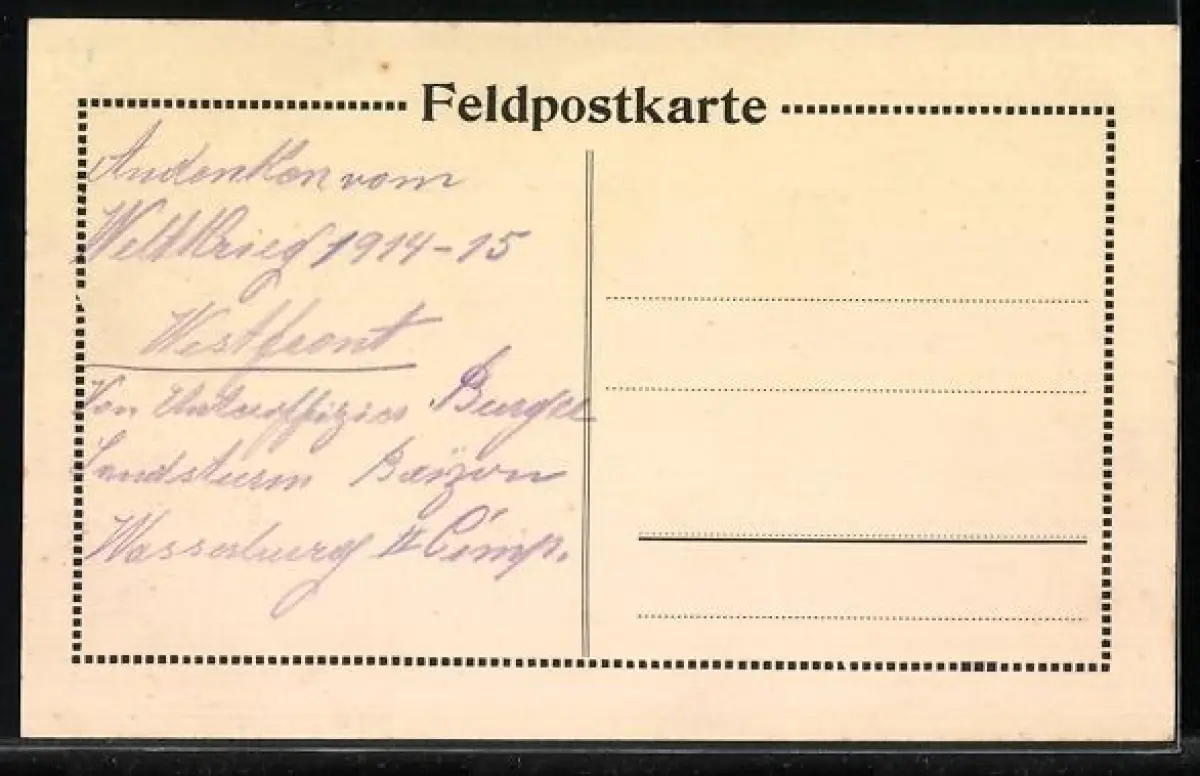 Feldpostkarte
Andenken vom
Weltkrieg 1914-15
Westfront
Von Unteroffizier
Landsturm Bayern
Wasserburg II Comp.